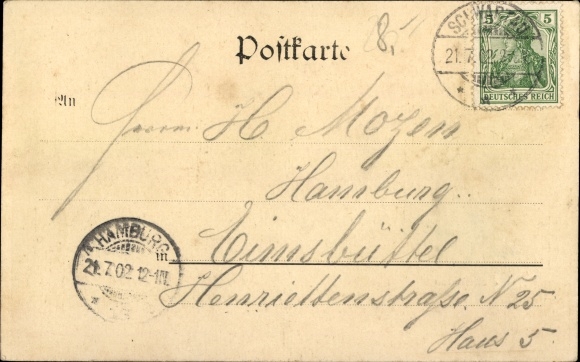 Postkarte
8,
5 5
DEUTSCHES REICH
SCHWARTAU
21.7.02
An
Herrn H. Mozen
Hamburg.
in Eimsbüttel
Henriettenstraße N 25
Haus 5
HAMBURG
21.7.02 12-1N.